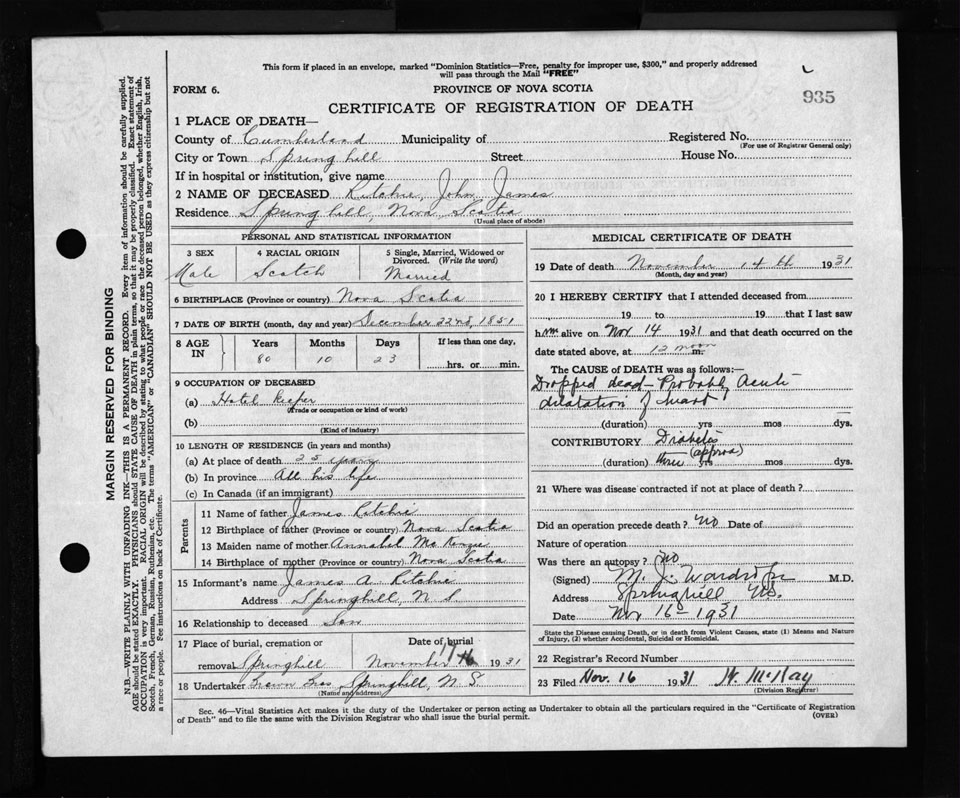 This form if placed in an envelope, marked "Dominion Statistics—Free, penalty for improper use, $300," and properly addressed
will pass through the Mail "FREE"
FORM 6.
PROVINCE OF NOVA SCOTIA
935
CERTIFICATE OF REGISTRATION OF DEATH
1 PLACE OF DEATH—
County of Cumberland Municipality of Registered No.
(For use of Registrar General only)
City or Town Springhill Street House No.
If in hospital or institution, give name
2 NAME OF DECEASED Ritchie, John James
Residence Springhill, Nova Scotia
(Usual place of abode)
PERSONAL AND STATISTICAL INFORMATION
3 SEX 4 RACIAL ORIGIN 5 Single, Married, Widowed or
Divorced. (Write the word)
Male Scotch Married
6 BIRTHPLACE (Province or country) Nova Scotia
7 DATE OF BIRTH (month, day and year) December 22nd, 1851
8 AGE IN Years Months Days If less than one day,
80 10 23 hrs. or min.
9 OCCUPATION OF DECEASED
(a) Hotel Keeper
(Trade or occupation or kind of work)
(b)
(Kind of industry)
10 LENGTH OF RESIDENCE (in years and months)
(a) At place of death 25 years
(b) In province All his life
(c) In Canada (if an immigrant)
Parents
11 Name of father James Ritchie
12 Birthplace of father (Province or country) Nova Scotia
13 Maiden name of mother Annabel McKenzie
14 Birthplace of mother (Province or country) Nova Scotia
15 Informant's name James A. Ritchie
Address Springhill, N S
16 Relationship to deceased Son
17 Place of burial, cremation or Date of burial
removal Springhill November 17th 1931
18 Undertaker Bros Springhill, N. S.
(Name and address)
MEDICAL CERTIFICATE OF DEATH
19 Date of death November 14th 1931
(Month, day and year)
20 I HEREBY CERTIFY that I attended deceased from
19 to 19 that I last saw
him alive on Nov 14 1931 and that death occurred on
date stated above, at 12 noon m.
The CAUSE OF DEATH was as follows:—
Dropped dead – Probably Acute
dilatation of heart
(duration) yrs mos dys.
CONTRIBUTORY Diabetis
(duration) three yrs (approx) mos dys.
21 Where was disease contracted if not at place of death?
Did an operation precede death? No Date of
Nature of operation
Was there an autopsy? No
(Signed) M. J. Wardrope M.D.
Address Springhill NS.
Date Nov 16 1931
State the Disease causing Death, or in death from Violent Causes, state (1) Means and Nature
of Injury, (2) whether Accidental, Suicidal or Homicidal.
22 Registrar's Record Number
23 Filed Nov. 16 1931 McKay
(Division Registrar)
Sec. 46—Vital Statistics Act makes it the duty of the Undertaker or person acting as Undertaker to obtain all the particulars required in the "Certificate of Registration
of Death" and to file the same with the Division Registrar who shall issue the burial permit.
(OVER)
MARGIN RESERVED FOR BINDING
N.B.—WRITE PLAINLY WITH UNFADING INK—THIS IS A PERMANENT RECORD. Every item of information should be carefully supplied.
AGE should be stated EXACTLY. PHYSICIANS should STATE CAUSE OF DEATH in plain terms, so that it may be properly classified. Exact statement of
OCCUPATION is very important. RACIAL ORIGIN will be described by stating to what people or race the deceased person belonged, whether English, Irish,
Scotch, French, German, Russian, Ruthenian, etc. The terms "AMERICAN" or "CANADIAN" SHOULD NOT BE USED as they express citizenship but not
a race or people. Fee instructions on back of Certificate.